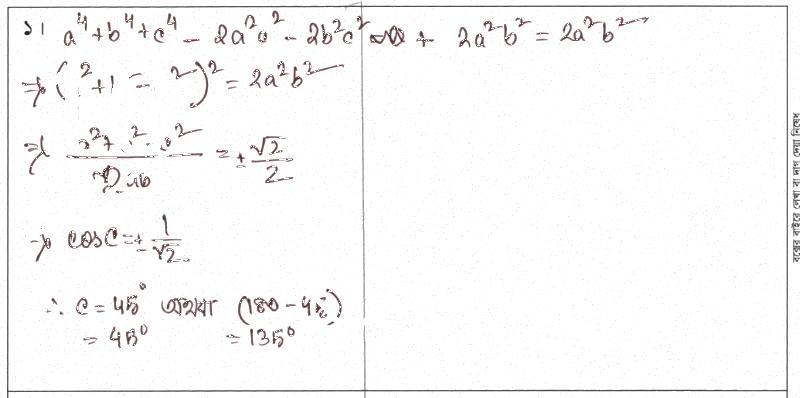 ১। a⁴+b⁴+c⁴ - 2a²c² - 2b²c² + 2a²b² = 2a²b²
⇒ ( ²+ - ²)² = 2a²b²
⇒ ²+ ² ² / 2ab = ± √2/2
⇒ cosC = ± 1/√2
∴ C = 45° অথবা (180 - 45)
= 45° = 135°
বক্সের বাইরে লেখা বা দাগ দেয়া নিষেধ